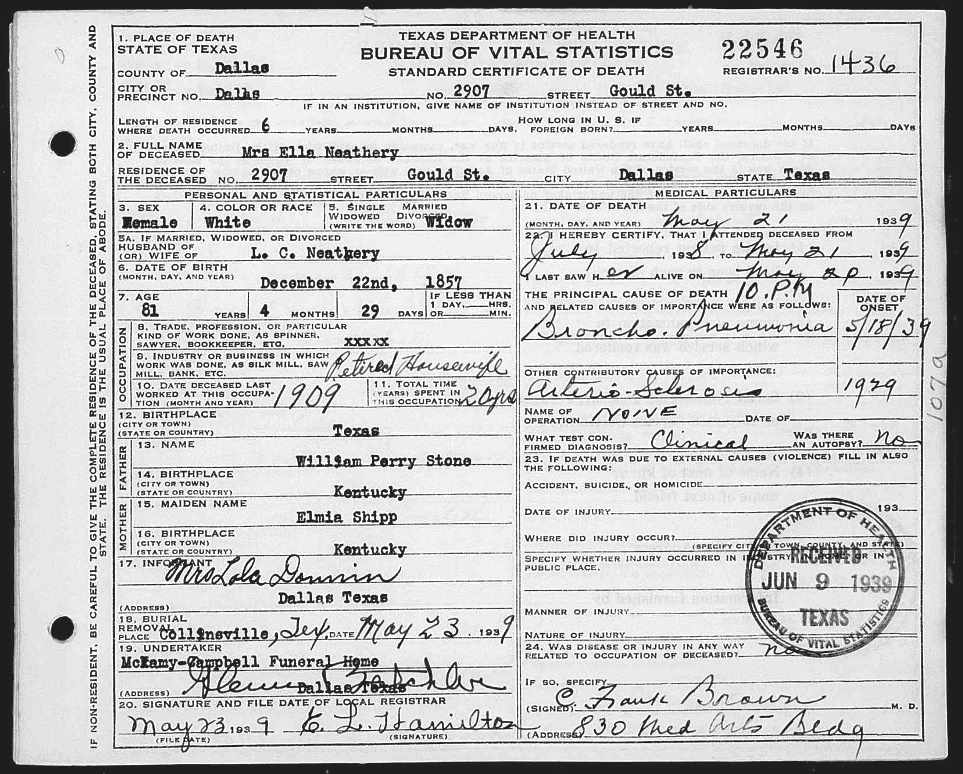 TEXAS DEPARTMENT OF HEALTH
BUREAU OF VITAL STATISTICS
STANDARD CERTIFICATE OF DEATH
22546
REGISTRAR'S NO. 1436
1. PLACE OF DEATH
STATE OF TEXAS
COUNTY OF Dallas
CITY OR
PRECINCT NO. Dalls NO. 2907 STREET Gould St.
IF IN AN INSTITUTION, GIVE NAME OF INSTITUTION INSTEAD OF STREET AND NO.
LENGTH OF RESIDENCE
WHERE DEATH OCCURRED 6 YEARS MONTHS DAYS.
HOW LONG IN U. S. IF
FOREIGN BORN? YEARS MONTHS DAYS
2. FULL NAME
OF DECEASED Mrs Ella Neathery
RESIDENCE OF
THE DECEASED NO. 2907 STREET Gould St. CITY Dallas STATE Texas
PERSONAL AND STATISTICAL PARTICULARS
3. SEX
Female
4. COLOR OR RACE
White
5. SINGLE MARRIED
WIDOWED DIVORCED
(WRITE THE WORD) Widow
5A. IF MARRIED, WIDOWED, OR DIVORCED
HUSBAND OF
(OR) WIFE OF L. C. Neathery
6. DATE OF BIRTH
(MONTH, DAY, AND YEAR)
December 22nd, 1857
7. AGE
81 YEARS 4 MONTHS 29 DAYS
IF LESS THAN
1 DAY, HRS.
OR MIN.
OCCUPATION
8. TRADE, PROFESSION, OR PARTICULAR
KIND OF WORK DONE, AS SPINNER,
SAWYER, BOOKKEEPER, ETC. xxxxx
9. INDUSTRY OR BUSINESS IN WHICH
WORK WAS DONE, AS SILK MILL, SAW
MILL, BANK, ETC. Retired Housewife
10. DATE DECEASED LAST
WORKED AT THIS OCCUPA-
TION (MONTH AND YEAR) 1909
11. TOTAL TIME
(YEARS) SPENT IN
THIS OCCUPATION 20 yrs
12. BIRTHPLACE
(CITY OR TOWN)
(STATE OR COUNTRY) Texas
FATHER
13. NAME
William Perry Stone
14. BIRTHPLACE
(CITY OR TOWN)
(STATE OR COUNTRY) Kentucky
MOTHER
15. MAIDEN NAME
Elmia Shipp
16. BIRTHPLACE
(CITY OR TOWN)
(STATE OR COUNTRY) Kentucky
17. INFORMANT
Mrs Lola
Dallas Texas
(ADDRESS)
18. BURIAL
REMOVAL
PLACE Collinsville, Tex. DATE May 23 1939
19. UNDERTAKER
McKamy-Campbell Funeral Home
(ADDRESS) Dallas Texas
20. SIGNATURE AND FILE DATE OF LOCAL REGISTRAR
May 23 1939 E. L. Hamilton
(FILE DATE) (SIGNATURE)
MEDICAL PARTICULARS
21. DATE OF DEATH
(MONTH, DAY, AND YEAR) May 21 1939
22. I HEREBY CERTIFY, THAT I ATTENDED DECEASED FROM
July 1938 TO May 21 1939
I LAST SAW H er ALIVE ON May 20 1939
THE PRINCIPAL CAUSE OF DEATH 10. P.M
AND RELATED CAUSES OF IMPORTANCE WERE AS FOLLOWS:
DATE OF
ONSET
Broncho. Pneumonia 5/18/39
OTHER CONTRIBUTORY CAUSES OF IMPORTANCE:
Arterio-Sclerosis 1929
NAME OF
OPERATION NONE DATE OF
WHAT TEST CON-
FIRMED DIAGNOSIS? Clinical
WAS THERE
AN AUTOPSY? no
23. IF DEATH WAS DUE TO EXTERNAL CAUSES (VIOLENCE) FILL IN ALSO
THE FOLLOWING:
ACCIDENT, SUICIDE, OR HOMICIDE
DATE OF INJURY 193
WHERE DID INJURY OCCUR?
(SPECIFY CITY OR TOWN, COUNTY, AND STATE)
SPECIFY WHETHER INJURY OCCURRED IN INDUSTRY, IN HOME, OR IN
PUBLIC PLACE.
MANNER OF INJURY
NATURE OF INJURY
24. WAS DISEASE OR INJURY IN ANY WAY
RELATED TO OCCUPATION OF DECEASED? no
IF SO, SPECIFY
(SIGNED) C. Frank Brown M. D.
(ADDRESS) 830 Med Arts Bldg
DEPARTMENT OF HEALTH
RECEIVED
JUN 9 1939
TEXAS
BUREAU OF VITAL STATISTICS
107a
IF NON-RESIDENT, BE CAREFUL TO GIVE THE COMPLETE RESIDENCE OF THE DECEASED, STATING BOTH CITY, COUNTY AND
STATE. THE RESIDENCE IS THE USUAL PLACE OF ABODE.